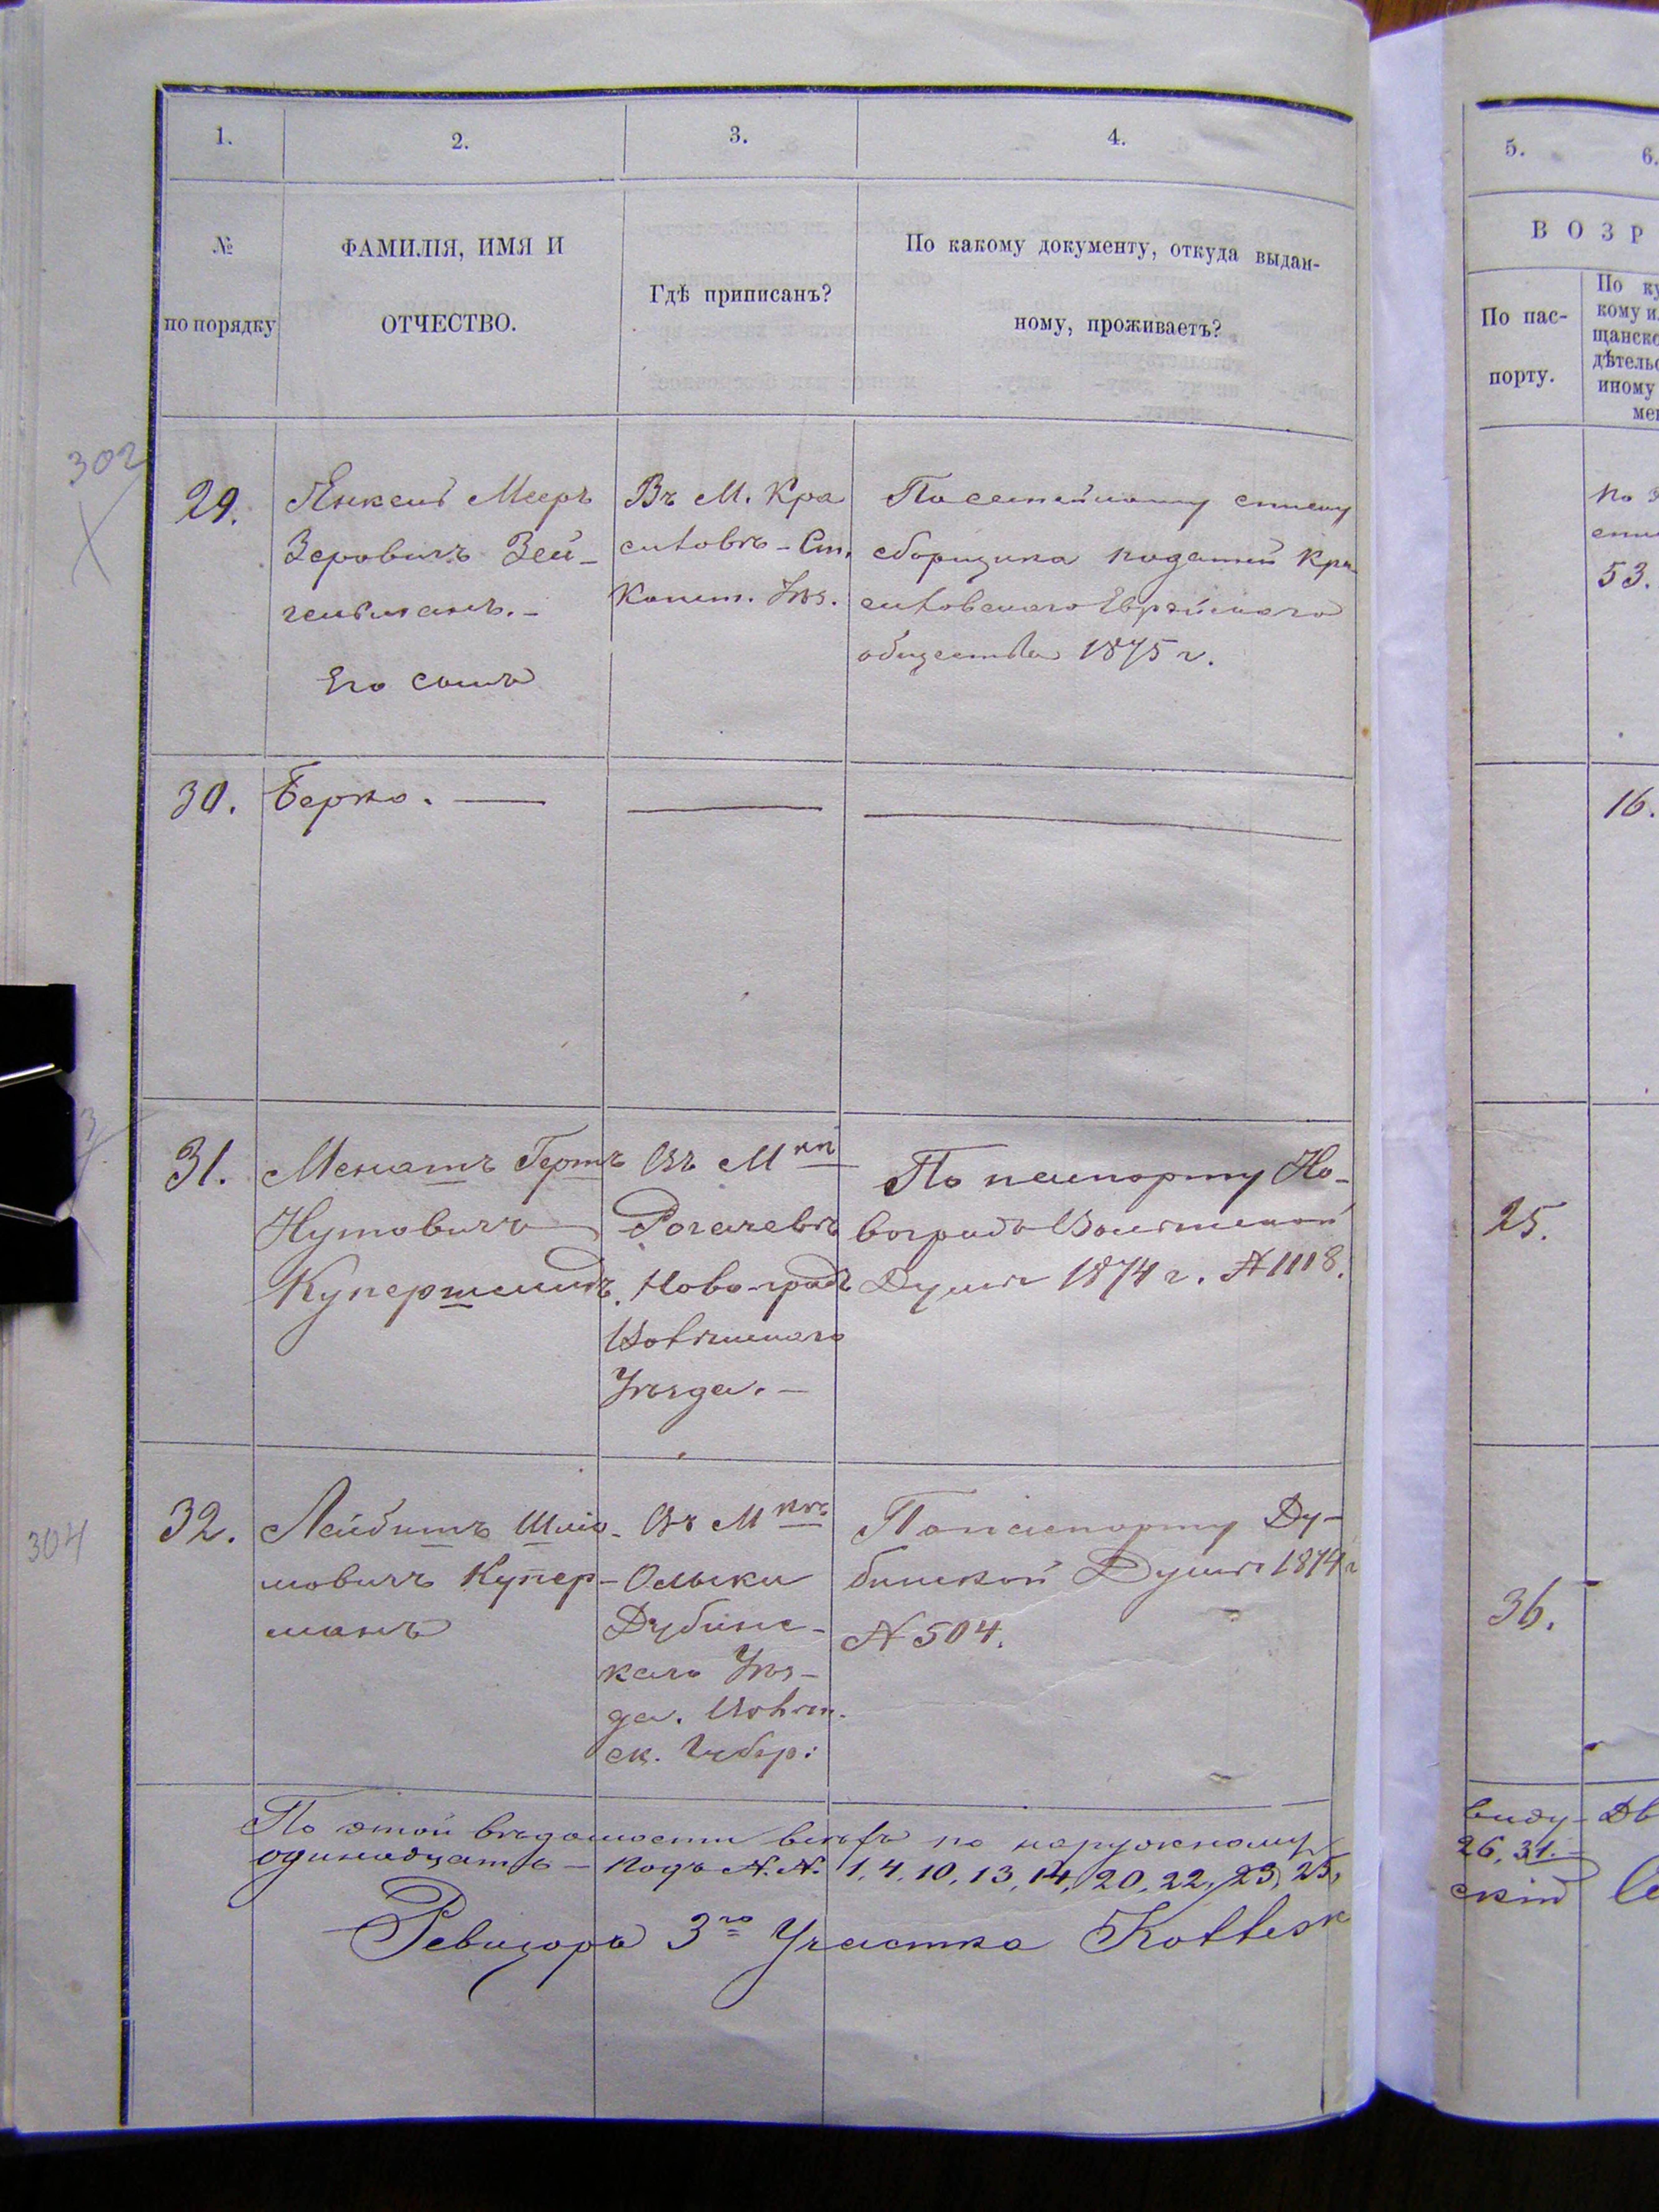 1. 2. 3. 4.
№ по порядку
ФАМИЛІЯ, ИМЯ И
ОТЧЕСТВО.
Гдѣ приписанъ?
По какому документу, откуда выдан-
ному, проживаетъ?
302
29.
Янкель Мееръ
Зеровичъ Зей-
гельманъ.-
Его сынъ
Въ М. Кра
силовѣ-Ст.
Конст. Уѣз.
По семейному списку
сборщика податей Кра-
силовскаго Еврейскаго
общества 1875 г.
30. Берко. —
31.
Герш
Нутовичъ
Въ М
Рогачевѣ
Новоград
Волынскаго
Уѣзда.-
По паспорту Но-
воградъ Волынской
Думы 1874 г. № 1118.
304
32.
Лейбишъ Шлио-
мовичъ Купер-
манъ
Въ М
Олыки
Дубинс-
каго Уѣз-
да. Волын.
ск. Губер:
По паспорту Ду-
бинской Думы 1874 г
№ 504.
По этой вѣдомости по наружному
одинадцать - подъ N.N. 1, 4, 10, 13, 14, 20, 22, 23, 25,
Ревизоръ 3го Участка
5. 6.
ВОЗР
По пас-
порту.
По ку
кому и
щанско
дѣтельс
иному
мен
по
53.
16.
25.
36.
виду- Дв
26, 31.-
скій